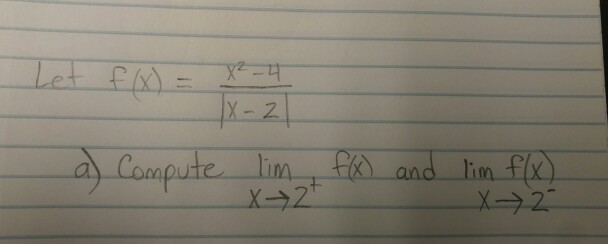 Let f(x) = x² - 4
|x - 2|
a) Compute lim f(x) and lim f(x)
x→2⁺ x→2⁻